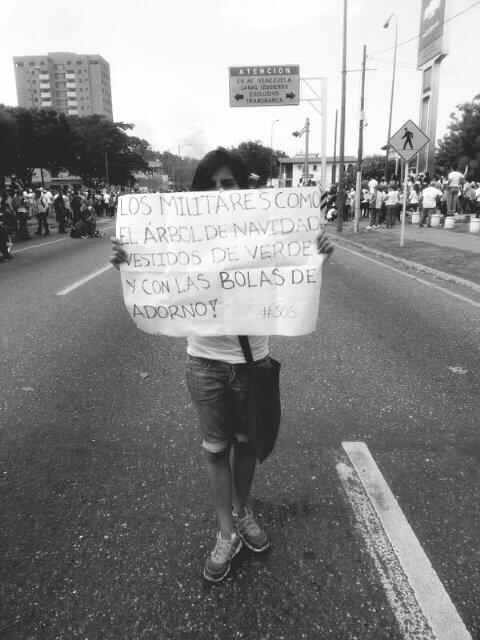 ATENCION
EN AV. VENEZUELA
CANAL IZQUIERDO
EXCLUSIVO
TRANSBARCA
LOS MILITARES COMO
EL ÁRBOL DE NAVIDAD
VESTIDOS DE VERDE
Y CON LAS BOLAS DE
ADORNO!
#SOS